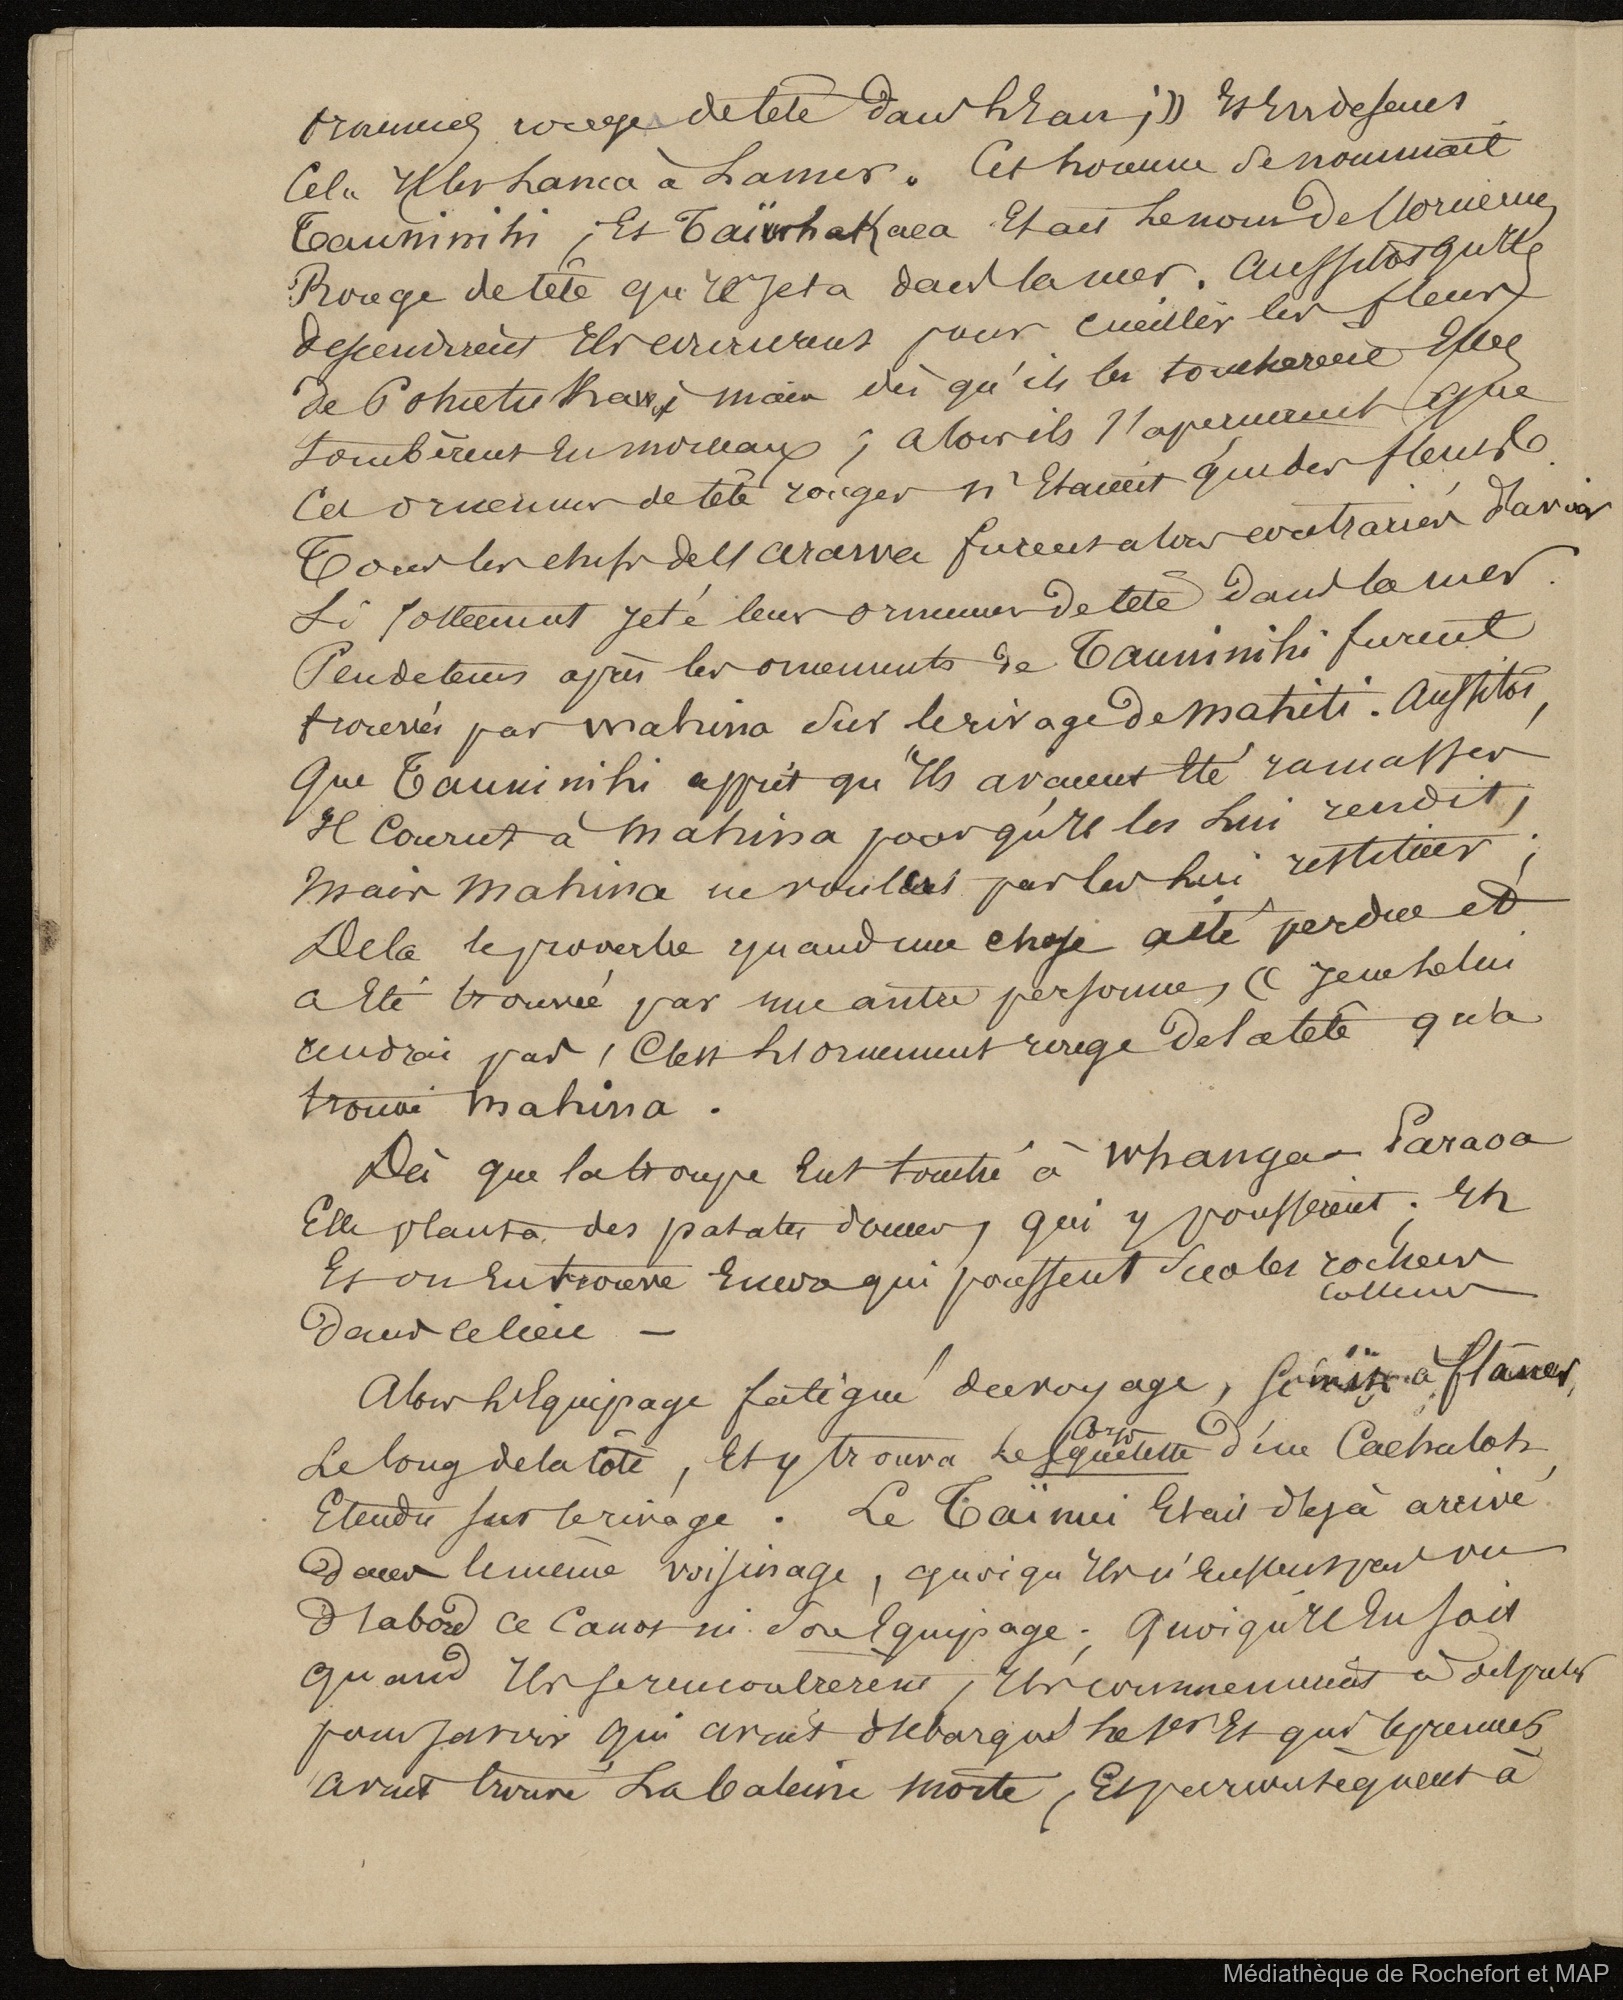 rouge de tête dans l'Eau ; » Et En disant
Cela Il les lança à La mer. Cet homme se nommait
Tauninihi ; Et Taïwhakaea Etait Le nom de l'ornement
Rouge de tête qu'Il Jeta dans la mer. Aussitôt qu'Ils
descendirent Ils coururent pour cueillir les fleurs
de Pohutukawa ; mais dès qu'ils les touchèrent Elles
tombèrent En morceaux ; alors ils s'aperçurent que
Ces ornements de tête rouges n'Etaient que des fleurs
Tous les chefs de l'Arawa furent alors contrariés d'avoir
Si sottement Jeté leurs ornements de tête dans la mer.
Peu de tems après les ornements de Tauninihi furent
trouvés par Mahina Sur le rivage de Mahiti. Aussitôt,
Que Tauninihi apprit qu'Ils avaient Eté ramassés
Il Courut à Mahina pour qu'Il les Lui rendit ;
Mais Mahina ne voulut pas les Lui restituer ;
De là le proverbe quand une chose a été perdue et
a Eté trouvée par une autre personne, « Je ne Le lui
rendrai pas, C'est L'ornement rouge de la tête qu'a
trouvé Mahina.
Dès que la troupe Eut touché à Whanga-Paraoa
Elle planta des patates douces, qui y poussèrent ; Et
Et on En trouve Encore qui poussent Sur les rochers
collines
Dans ce lieu —
Alors L'Equipage fatigué du voyage, Se mit à flâner,
Le long de la Côte, Et y trouva Le squelette d'un Cachalot
Corps
Etendu sur le rivage. Le Taïnui Etait déjà arrivé
Dans le même voisinage, quoiqu'Ils n'Eussent pas vu
D'abord ce Canot ni son Equipage ; Quoiqu'Il En soit
quand Ils se rencontrèrent, Ils commencèrent à disputer
pour savoir qui avait débarqué Le 1er Et qui le premier
avait trouvé La baleine morte, Et par conséquent à